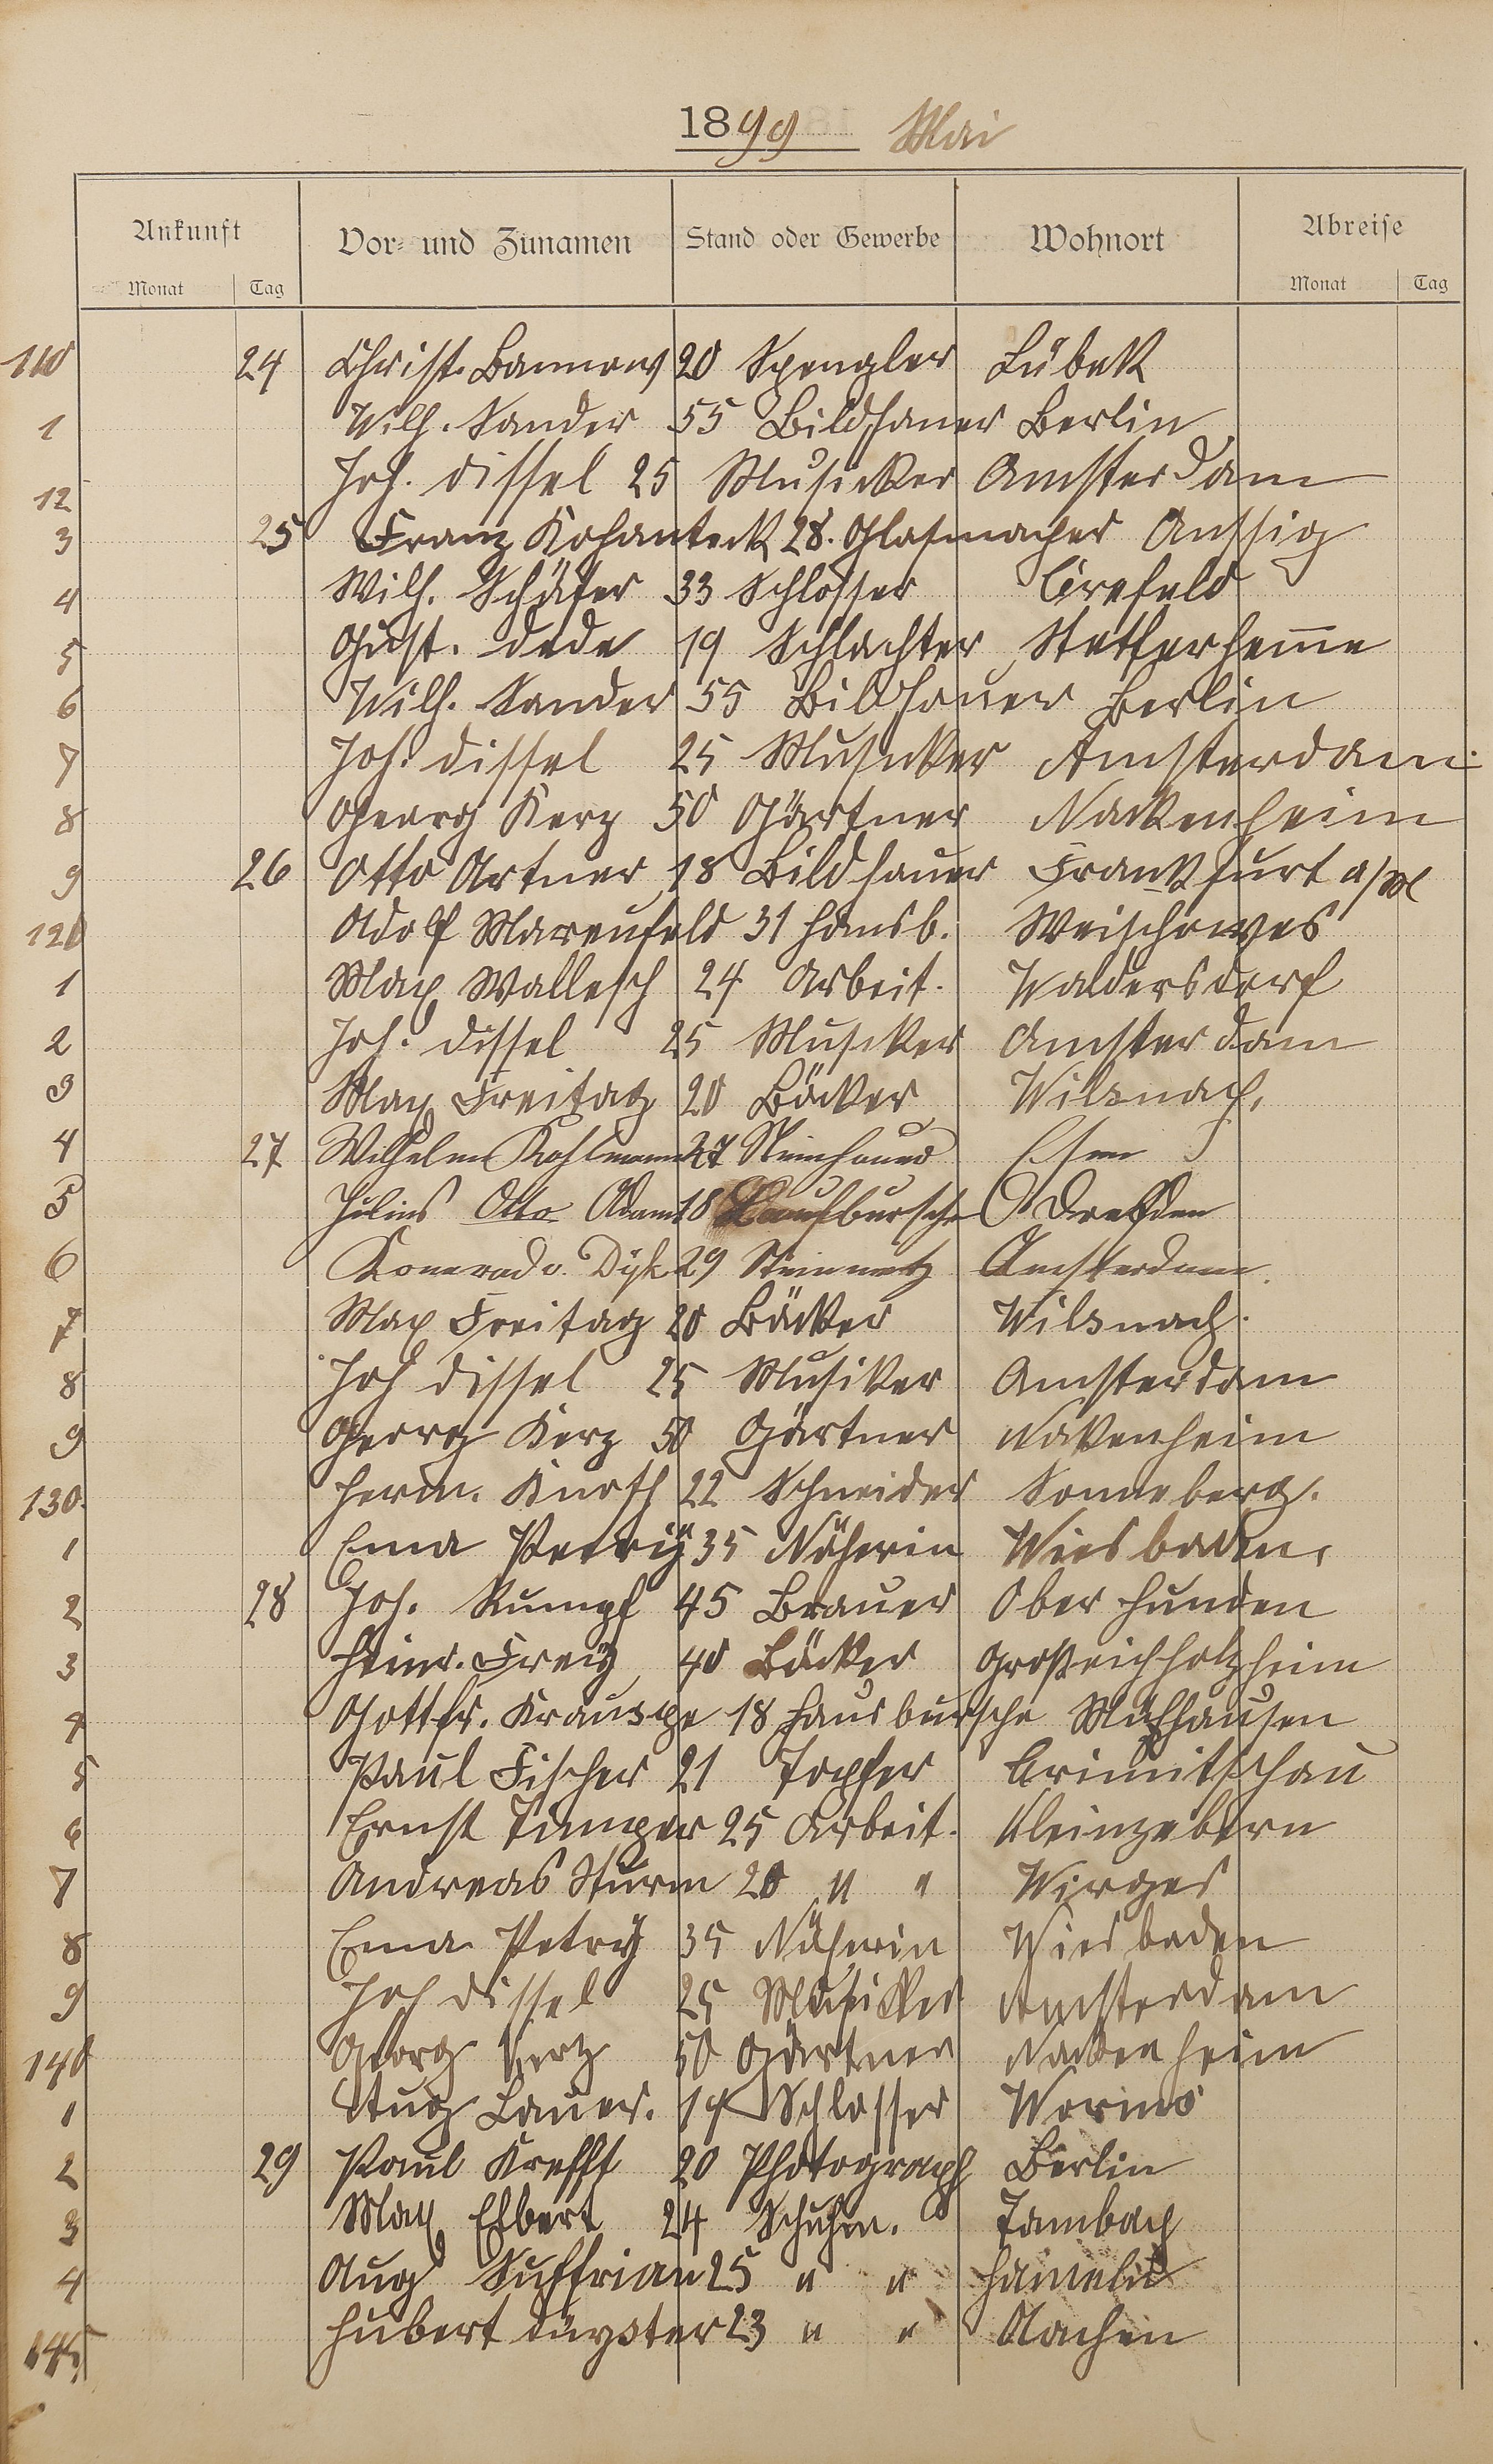 1899 Mai
Ankunft Vor- und Zunamen Stand oder Gewerbe Wohnort Abreise
Monat Tag Monat Tag
110 24 Christ. Bannow 20 Spengler Lübek
1 Wilh. Sander 55 Bildhauer Berlin
12 Joh. Dissel 25 Musicker Amsterdam
3 25 Franz Kohanteck 28. Glasmacher Aussig
4 Wilh. Schäfer 33 Schlosser Crefeld
5 Gust. Dede 19 Schlachter
6 Wilh. Sander 55 Bildhauer Berlin
7 Joh. Dissel 25 Musicker Amsterdam
8 Georg Kerz 50 Gärtner Nackenheim
9 26 Otto Artner 18 Bildhauer Frankfurt a/M
120 Adolf Marenfeld 31 Hausb.
1 Max Wallesch 24 Arbeit. Waldersdorf
2 Joh. Dissel 25 Musicker Amsterdam
3 Max Freitag 20 Bäcker Wilsnach.
4 27 Wilhelm Kohlmann 27 Steinhauer Esen
5 Julius Otto Adam 18 Laufbursche Dresden
6 Konerad v. Dijk 29 Steinmetz Amsterdam.
7 Max Freitag 20 Bäcker Wilsnach.
8 Joh Dissel 25 Musiker Amsterdam
9 Georg Kerz 50 Gärtner Nakenheim
130. Herm. Knoth 22 Schneider Sonneberg.
1 Ema Petrÿ 35 Näherin Wiesbaden.
2 28 Joh. Rumpf 45 Brauer Ober Hunden
3 Heinr. Freÿ 40 Bäcker Großeichholzheim
4 Gottfr. Krauspe 18 Hausbursche Mühhausen
5 Paul Fischer 21 Topfer Crimitschau
6 Ernst Timper 25 Arbeit. Kleinzebern
7 Andreas Sturm 20 " " Wirges
8 Ema Petrÿ 35 Näherin Wiesbaden
9 Joh Dissel 25 Musicker Amsterdam
140 Georg Kerz 50 Gärtner Nackenheim
1 Aug Lauer. 19 Schlosser Worms
2 29 Paul Krefft 20 Photograph Berlin
3 Max Elbert 24 Schuhm. Tambach
4 Aug Suffrian 25 " " Hameln
145 Hubert Düyster 23 " " Aachen